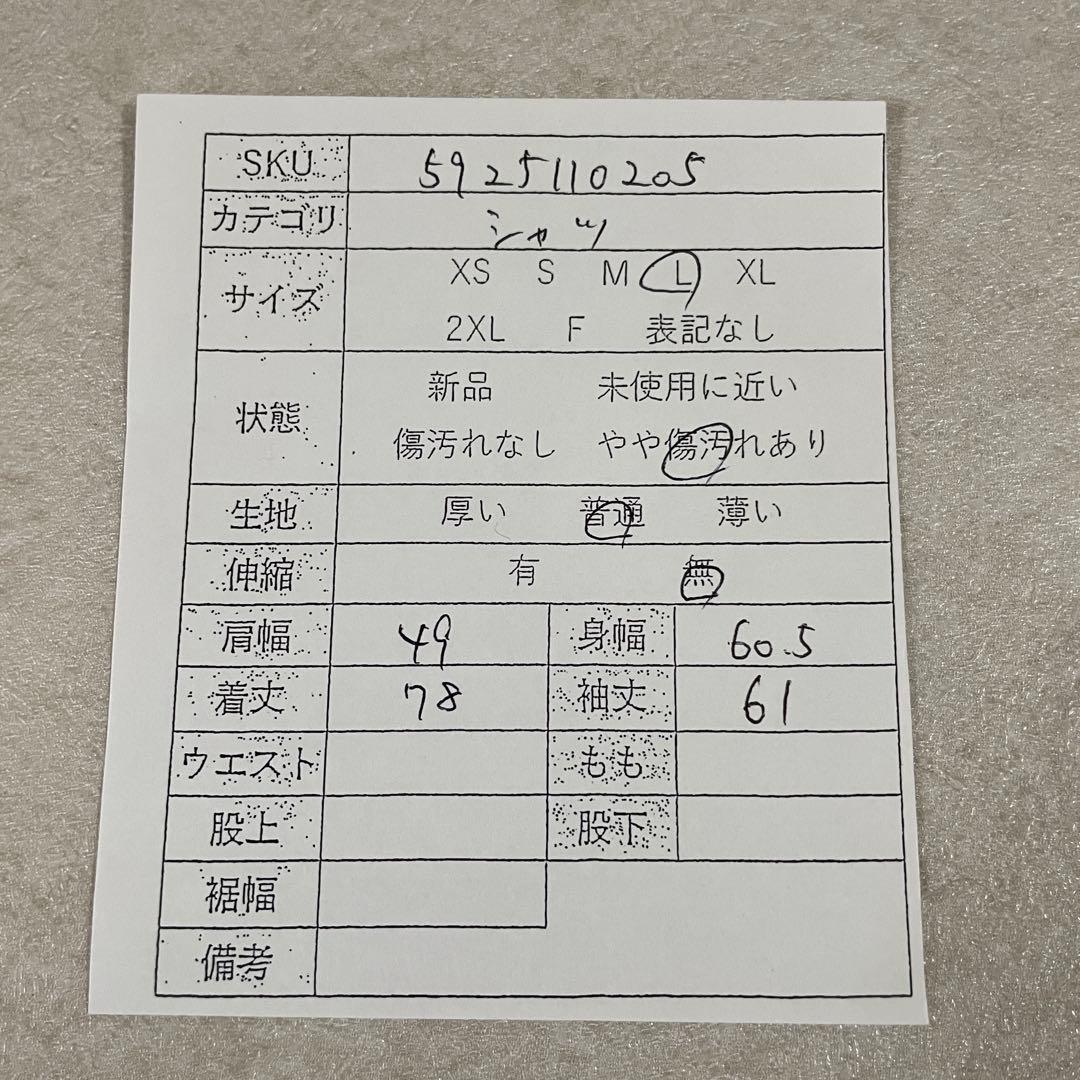 SKU 5925110205
カテゴリ シャツ
サイズ XS S M L XL
2XL F 表記なし
状態 新品 未使用に近い
傷汚れなし やや傷汚れあり
生地 厚い 普通 薄い
伸縮 有 無
肩幅 49 身幅 60.5
着丈 78 袖丈 61
ウエスト もも
股上 股下
裾幅
備考